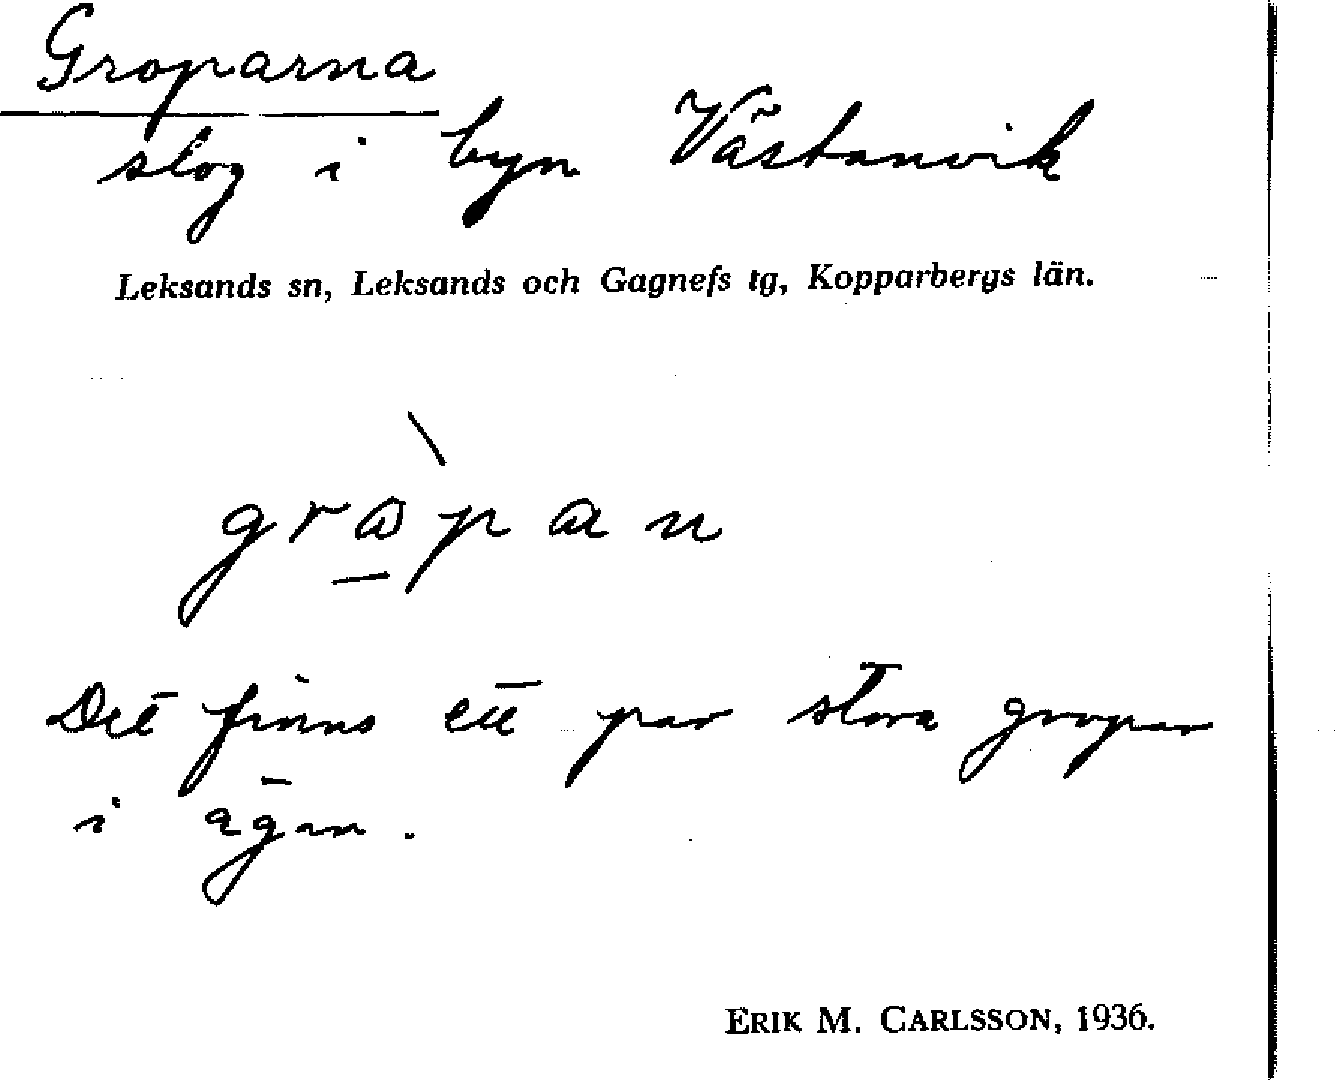 Groparna
slog i byn Västanvik
Leksands sn, Leksands och Gagnefs tg, Kopparbergs län.
Det finns ett par stora gropar
i ägan.
ERIK M. CARLSSON, 1936.